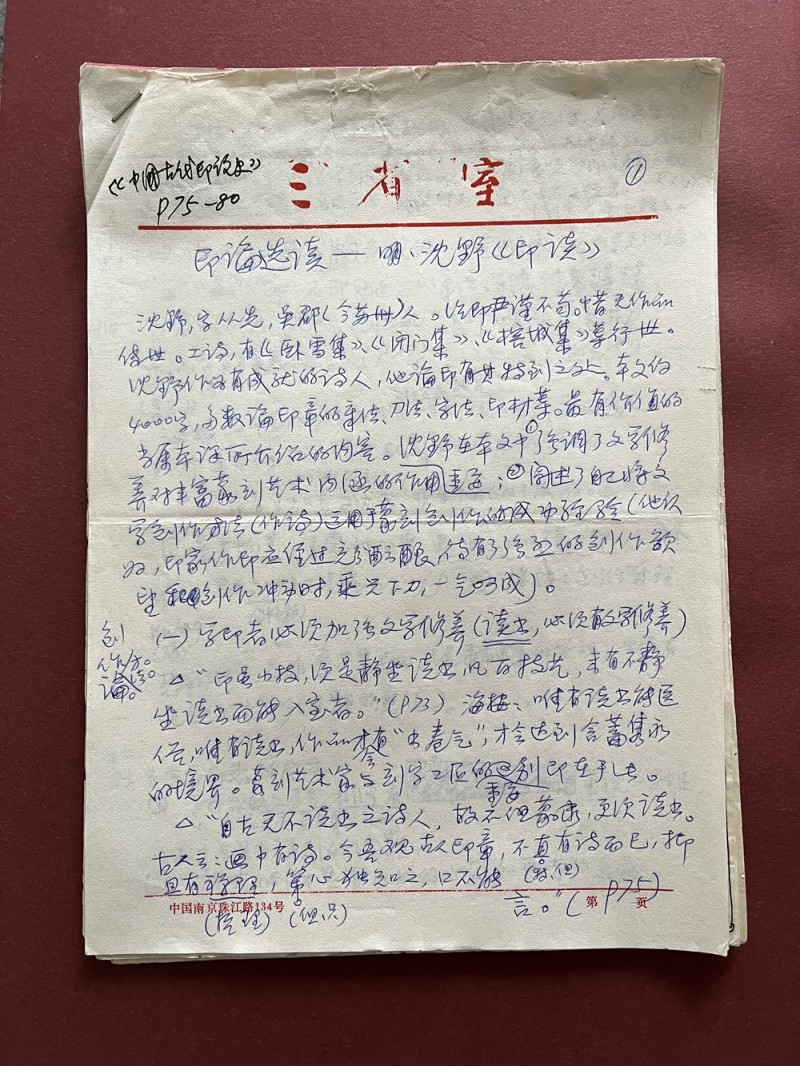 《中国古代印论史》
P75-80
三省室
①
印论选读——明·沈野《印谈》
沈野,字从先,吴郡(今苏州)人。治印严谨不苟。惜无作品
传世。工诗,有《卧雪集》、《闭门集》、《榕城集》等行世。
沈野作为有成就的诗人,他论印有其独到之处。本文约
4000字,多数论印章的章法、刀法、字法、印材等。最有价值的
当属本课所介绍的内容。沈野在本文中①强调了文学修
养对丰富篆刻艺术内涵的作用重要;②阐述了自己将文
学创作方法(作诗)运用于篆刻创作的成功经验(他认
为,印家作印应经过充分酝酿,待有了强烈的创作欲
望和创作冲动时,乘兴下刀,一气呵成)。
创作方法论。
(一)学印者必须加强文学修养(读书,必须有文学修养)
△"印虽小技,须是静坐读书,凡百技艺,未有不静
坐读书而能入室者。"(P73) 海按:唯有读书能医
俗,唯有读书,作品才会有"书卷气",才会达到含蓄隽永
的境界。篆刻艺术家与刻字工匠的重要区别即在于此。
△"自古无不读书之诗人,故不但篆隶,更须读书。
古人云:画中有诗。今吾观古人印章,不直有诗而已,抑
(特、但)
且有禅理,第心独知之,口不能
(哲理) (但只)
言。"(P75)
中国南京珠江路134号
第 页